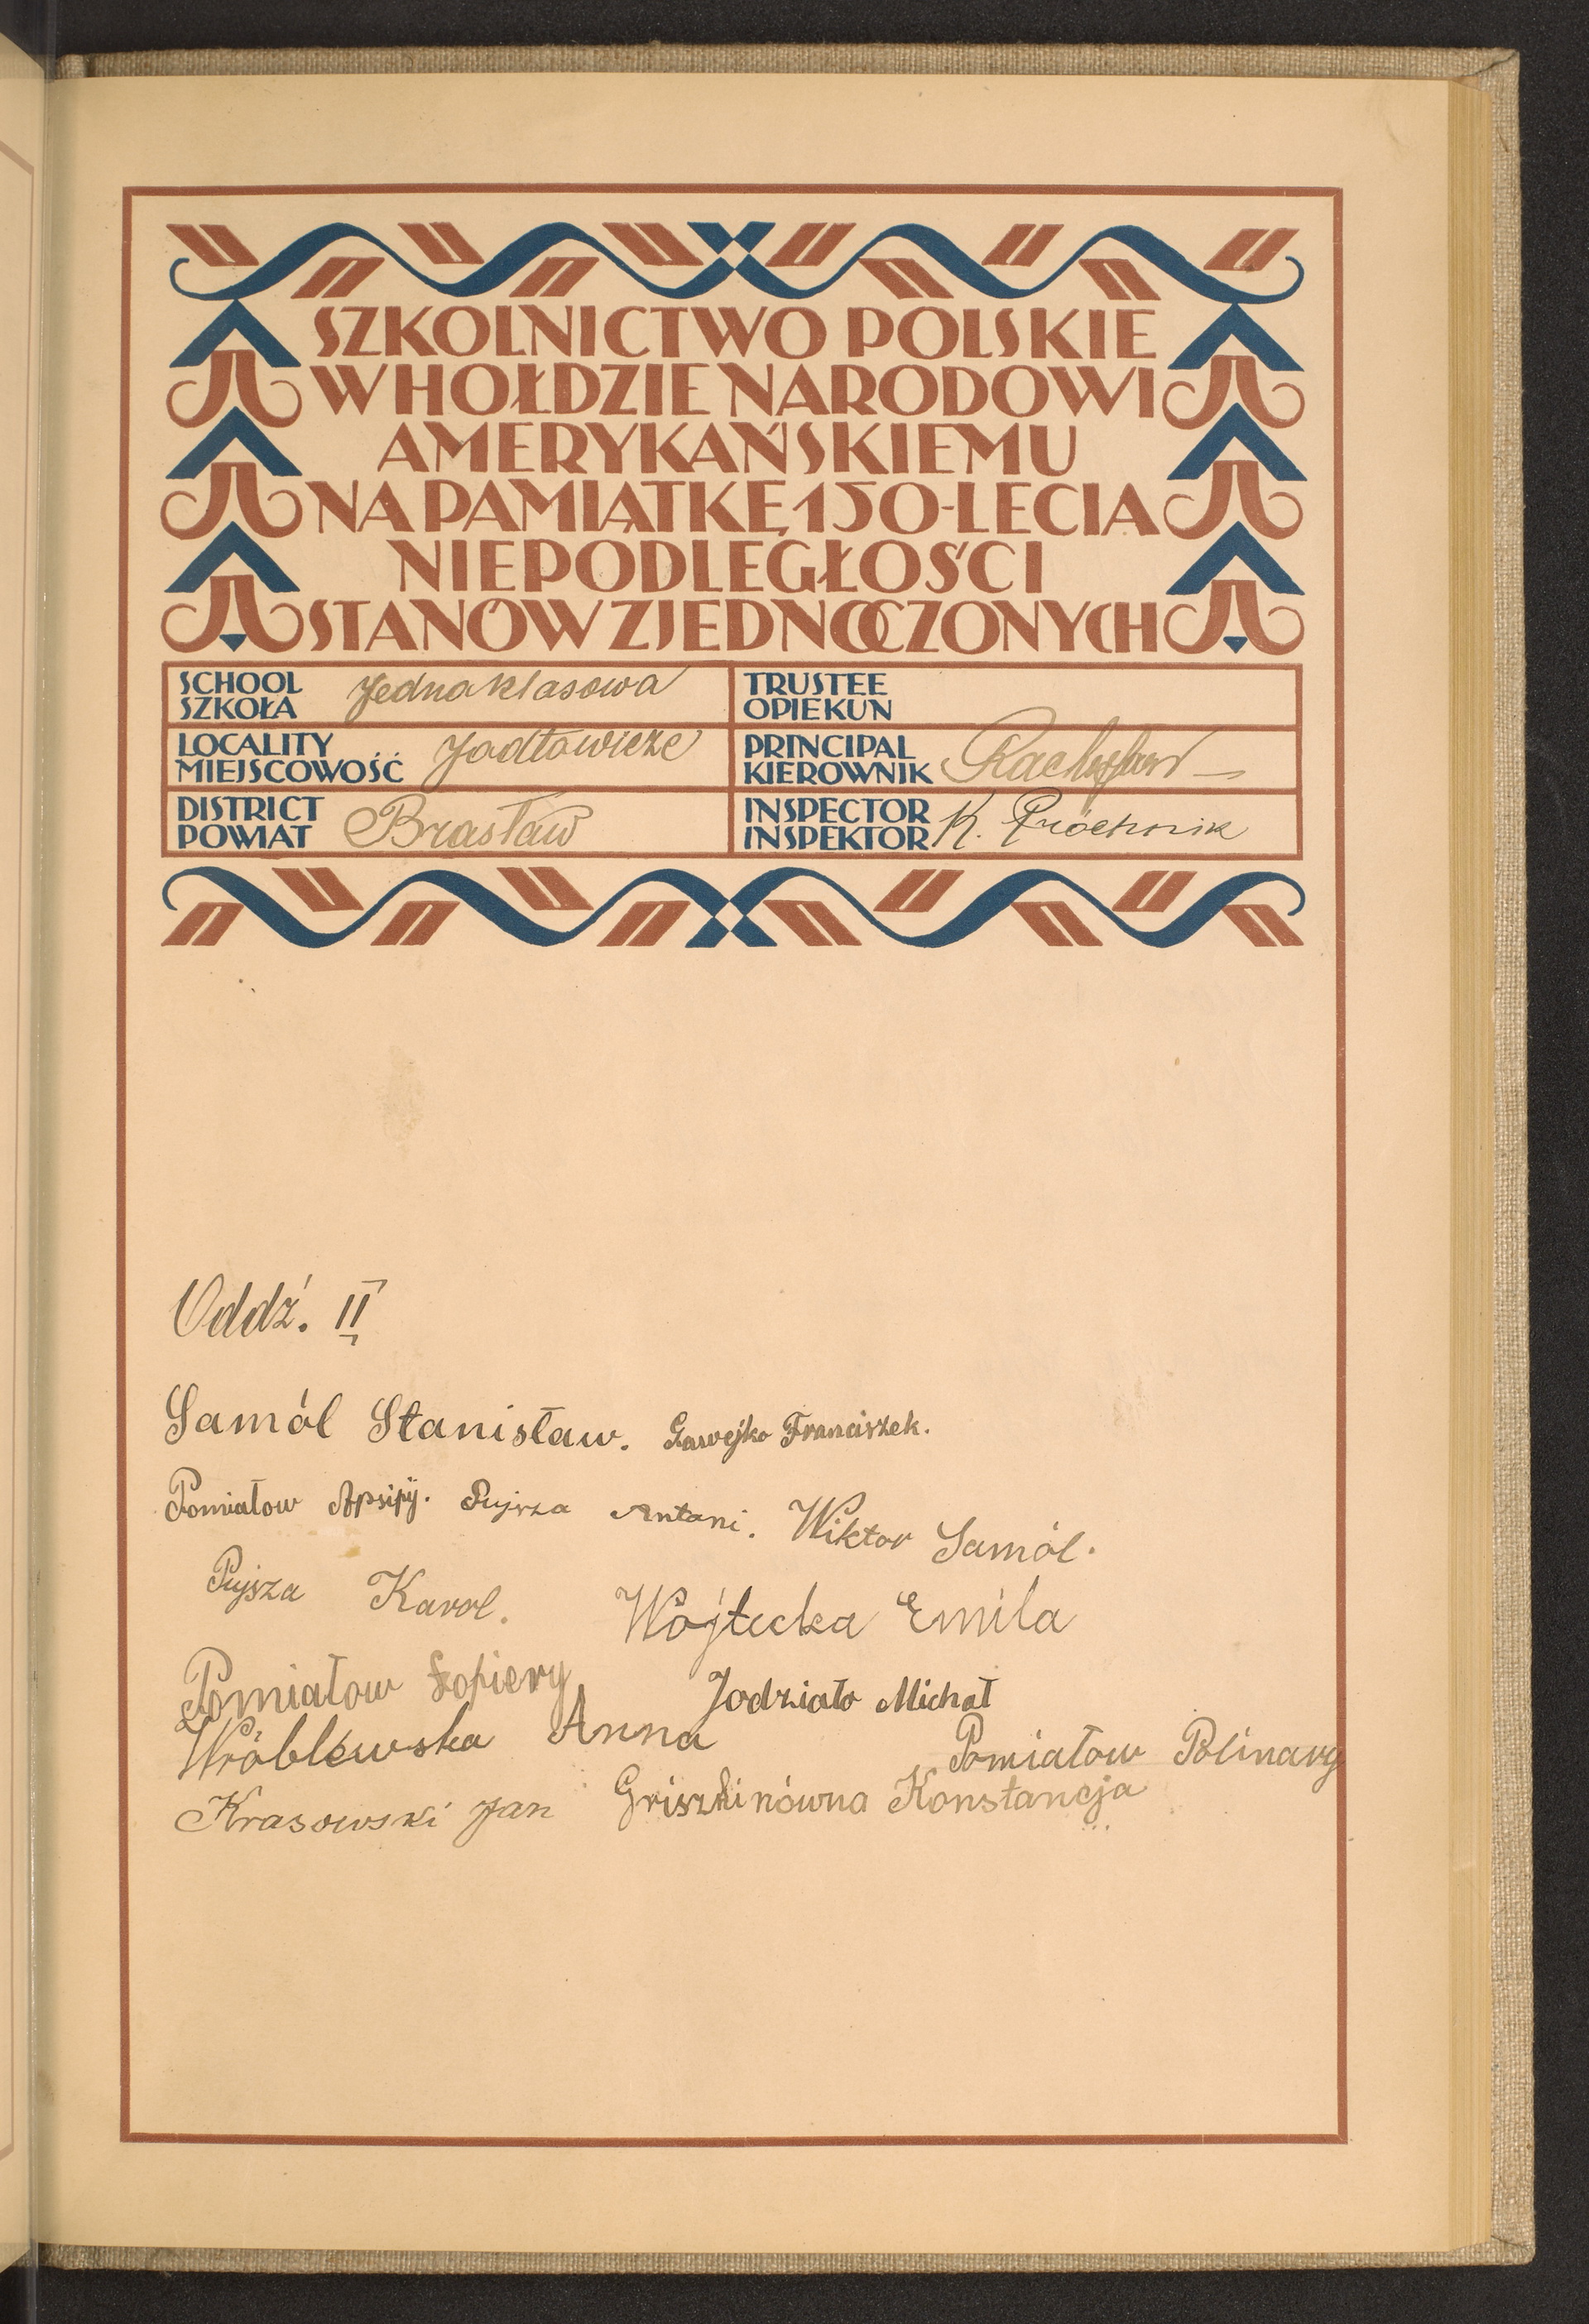 SZKOLNICTWO POLSKIE
W HOŁDZIE NARODOWI
AMERYKAŃSKIEMU
NA PAMIĄTKĘ 150-LECIA
NIEPODLEGŁOŚCI
STANÓW ZJEDNOCZONYCH
SCHOOL
SZKOŁA Jednoklasowa
TRUSTEE
OPIEKUN
LOCALITY
MIEJSCOWOŚĆ Jodłowicze
PRINCIPAL
KIEROWNIK
DISTRICT
POWIAT Brasław
INSPECTOR
INSPEKTOR K. Próchnik
Oddź. II
Samól Stanisław. Gawejko Franciszek.
Pomiałow Apsipij. Pujsza Antoni. Wiktor Samól.
Pujsza Karol. Wojtecka Emila
Pomiałow Jodziało Michał
Wróblewska Anna Pomiałow Polinary
Krasowski Jan Griszkinówna Konstancja